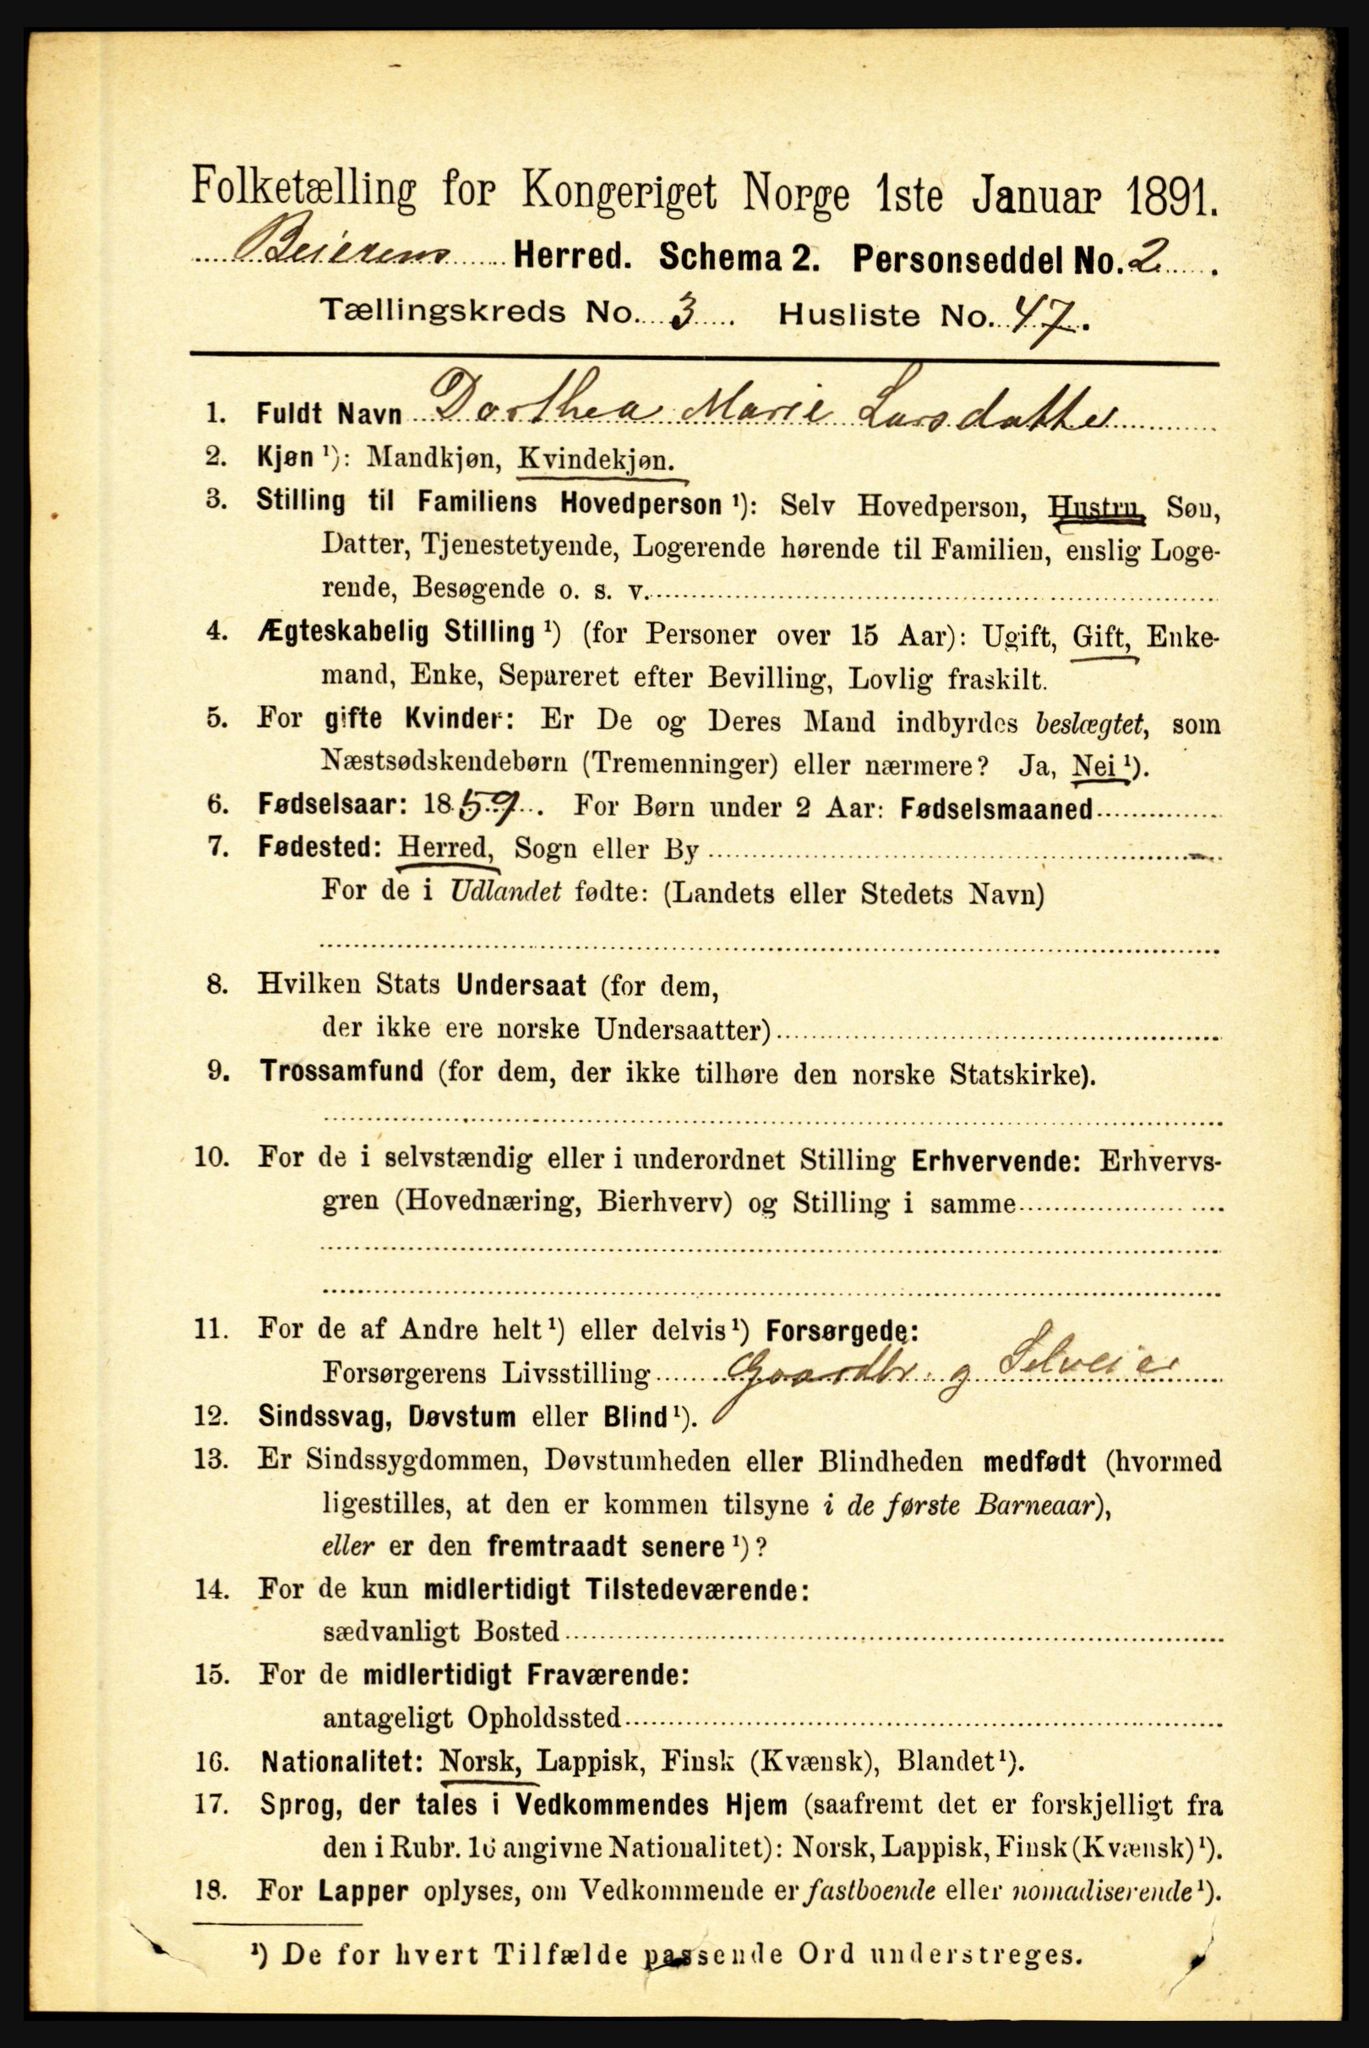 Folketælling for Kongeriget Norge 1ste Januar 1891.
Beierens Herred. Schema 2. Personseddel No. 2.
Tællingskreds No. 3. Husliste No. 47.
1. Fuldt Navn Dorthea Marie Larsdatter
2. Kjøn ¹): Mandkjøn, Kvindekjøn.
3. Stilling til Familiens Hovedperson ¹): Selv Hovedperson, Hustru, Søn,
Datter, Tjenestetyende, Logerende hørende til Familien, enslig Loge-
rende, Besøgende o. s. v.
4. Ægteskabelig Stilling ¹) (for Personer over 15 Aar): Ugift, Gift, Enke-
mand, Enke, Separeret efter Bevilling, Lovlig fraskilt.
5. For gifte Kvinder: Er De og Deres Mand indbyrdes beslægtet, som
Næstsødskendebørn (Tremenninger) eller nærmere? Ja, Nei ¹).
6. Fødselsaar: 1859. For Børn under 2 Aar: Fødselsmaaned
7. Fødested: Herred, Sogn eller By
For de i Udlandet fødte: (Landets eller Stedets Navn)
8. Hvilken Stats Undersaat (for dem,
der ikke ere norske Undersaatter)
9. Trossamfund (for dem, der ikke tilhøre den norske Statskirke).
10. For de i selvstændig eller i underordnet Stilling Erhvervende: Erhvervs-
gren (Hovednæring, Bierhverv) og Stilling i samme
11. For de af Andre helt ¹) eller delvis ¹) Forsørgede:
Forsørgerens Livsstilling Gaardbr. g Selveier
12. Sindssvag, Døvstum eller Blind ¹).
13. Er Sindssygdommen, Døvstumheden eller Blindheden medfødt (hvormed
ligestilles, at den er kommen tilsyne i de første Barneaar),
eller er den fremtraadt senere ¹)?
14. For de kun midlertidigt Tilstedeværende:
sædvanligt Bosted
15. For de midlertidigt Fraværende:
antageligt Opholdssted
16. Nationalitet: Norsk, Lappisk, Finsk (Kvænsk), Blandet ¹).
17. Sprog, der tales i Vedkommendes Hjem (saafremt det er forskjelligt fra
den i Rubr. 16 angivne Nationalitet): Norsk, Lappisk, Finsk (Kvænsk) ¹).
18. For Lapper oplyses, om Vedkommende er fastboende eller nomadiserende ¹).
¹) De for hvert Tilfælde passende Ord understreges.